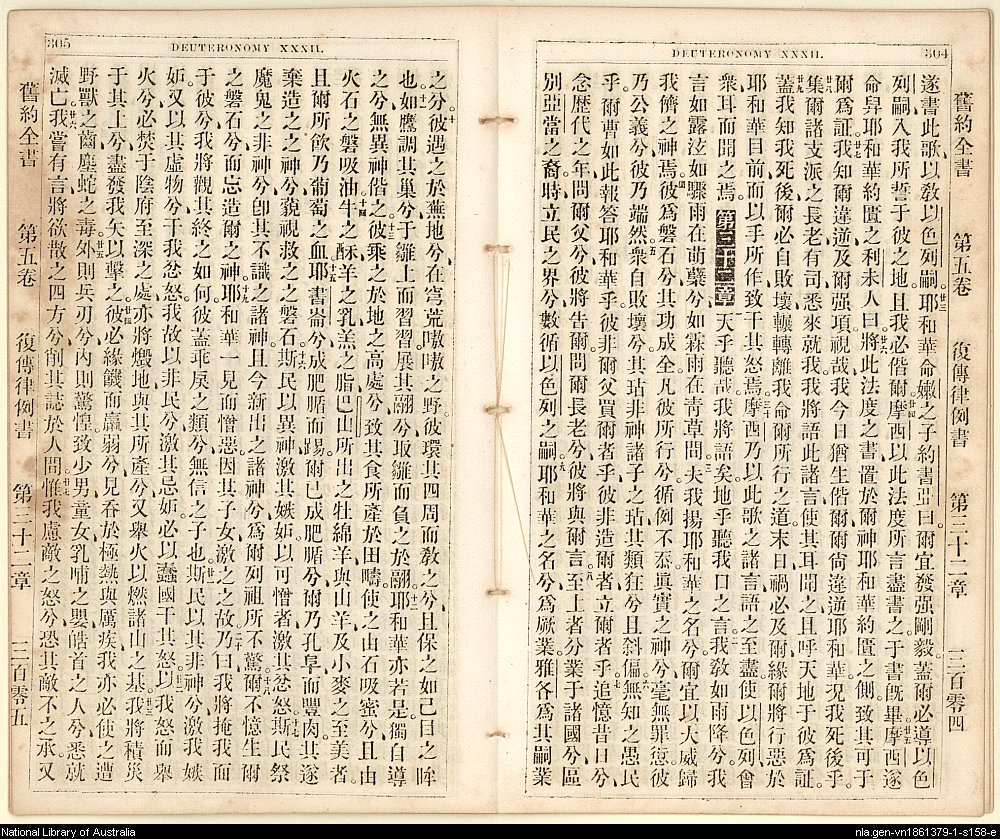 DEUTERONOMY XXXII.
304
舊約全書 第五卷 復傳律例書 第三十二章 三百零四
遂書此歌以敎以色列嗣廿三耶和華命嫩之子約書亞曰爾宜發强剛毅蓋爾必導以色
列嗣入我所誓于彼之地且我必偕爾廿四摩西以此法度所言盡書之于書旣畢廿五摩西遂
命舁耶和華約匱之利未人曰廿六將此法度之書置於爾神耶和華約匱之側致其可于
爾爲証廿七我知爾違逆及爾强項視哉我今日猶生偕爾爾尙違逆耶和華況我死後乎廿八
集爾諸支派之長老有司悉來就我我將語此諸言使其耳聞之且呼天地于彼爲証廿九
蓋我知我死後爾必自敗壞輾轉離我命爾所行之道末日禍必及爾緣爾將行惡於
耶和華目前而以手所作致干其怒焉三十摩西乃以此歌之諸言語之至盡使以色列會
衆耳而聞之焉第三十二章天乎聽哉我將語矣地乎聽我口之言二我敎如雨降兮我
言如露泫如驟雨在萌蘖兮如霖雨在靑草間三夫我揚耶和華之名兮爾宜以大威歸
我儕之神焉四彼爲磐石兮其功成全凡彼所行兮循例不忒眞實之神兮毫無罪愆彼
乃公義兮彼乃端然五衆自敗壞兮其玷非神諸子之玷其類在兮且斜偏六無知之愚民
乎爾曹乃如此報答耶和華乎彼非爾父買爾者乎彼非造爾者立爾者乎七追憶昔日兮
念歷代之年問爾父兮彼將告爾問爾長老兮彼將與爾言八至上者分業于諸國兮區
別亞當之裔時立民之界兮數循以色列之嗣九耶和華之名兮爲厥業雅各爲其嗣業
DEUTERONOMY XXXII.
305
之分十彼遇之於蕪地兮在穹荒嗷嗷之野彼環其四周而敎之兮且保之如己目之眸
也十一如鷹調其巢兮于雛上而習習展其翮兮取雛而負之於翮十二耶和華亦若是獨自導
之兮無異神偕之十三彼乘之於地之高處兮致其食所產於田疇使之由石吸蜜兮且由
火石之磐吸油十四牛之酥羊之乳羔之脂巴山所出之牡綿羊與山羊及小麥之至美者
且爾所飮乃葡萄之血十五耶書崙兮成肥腯而踢爾已成肥腯兮爾乃孔阜而豐肉其遂
棄造之之神兮藐視救之之磐石十六斯民以異神激其嫉妬以可憎者激其忿怒十七斯民祭
魔鬼之非神兮卽其不識之諸神且今新出之諸神兮爲爾列祖所不驚十八爾不憶生爾
之磐石兮而忘造爾之神十九耶和華一見而憎惡因其子女激之之故二十乃曰我將掩我面
于彼兮我將觀其終之如何彼蓋乖戾之類兮無信之子也廿一斯民以其非神兮激我嫉
妬又以其虛物兮干我忿怒我故以非民兮激其忌妬必以蠢國干其怒廿二以我怒而舉
火兮必焚于陰府至深之處亦將燬地與其所產兮又舉火以燃諸山之基廿三我將積災
于其上兮盡發我矢以擊之廿四彼必緣饑而羸弱兮見吞於極熱與厲疾我亦必使之遭
野獸之齒塵蛇之毒廿五外則兵刃兮內則驚惶致少男童女乳哺之嬰皓首之人兮悉就
滅亡廿六我嘗有言將欲散之四方兮削其誌於人間廿七惟我慮敵之怒兮恐其敵不之承又
舊約全書 第五卷 復傳律例書 第三十二章 三百零五
National Library of Australia
nla.gen-vn1861379-1-s158-e